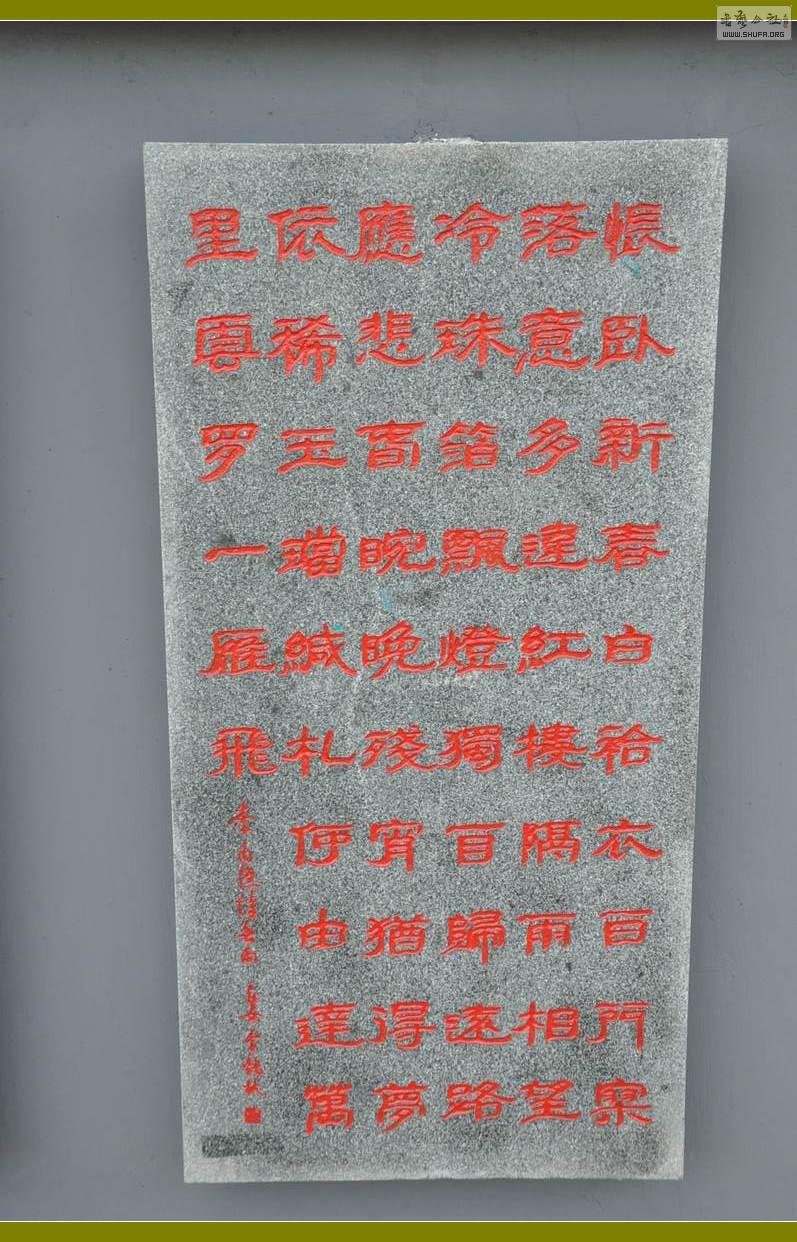 悵臥新春白袷衣百門寥
落意多違紅樓隔雨相望
冷珠箔飄燈獨自歸遠路
應悲旾晼晚殘宵猶得夢
依稀玉璫緘札何由達萬
里雲罗一雁飛
李商隱詩春雨
书艺公社
WWW.SHUFA.ORG